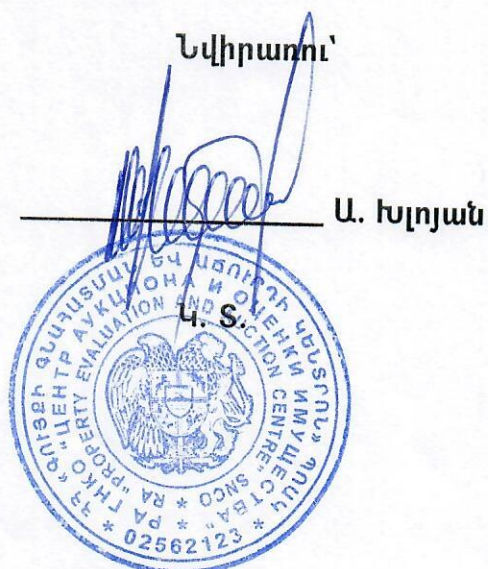 Նվիրառու՝
Ա. Խլոյան
Կ. Տ.
* ՀՀ «ԳՈՒՅՔԻ ԳՆԱՀԱՏՄԱՆ ԵՎ ԱՃՈՒՐԴԻ ԿԵՆՏՐՈՆ» ՊՈԱԿ *
02562123
* РА ГНКО "ЦЕНТР АУКЦИОНА И ОЦЕНКИ ИМУЩЕСТВА" *
* RA "PROPERTY EVALUATION AND AUCTION CENTRE" SNCO *